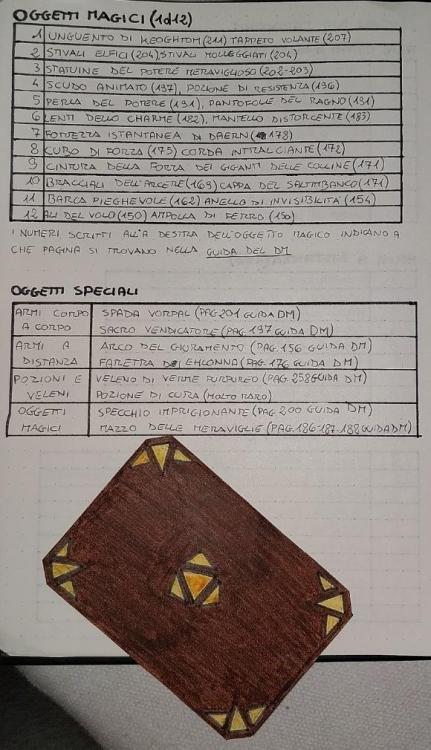 OGGETTI MAGICI (1d12)
1 UNGUENTO DI KEOGHTOM (211) TAPPETO VOLANTE (207)
2 STIVALI ELFICI (204) STIVALI MOLLEGGIATI (204)
3 STATUINE DEL POTERE MERAVIGLIOSO (202-203)
4 SCUDO ANIMATO (197), POZIONE DI RESISTENZA (196)
5 PERLA DEL POTERE (191), PANTOFOLE DEL RAGNO (191)
6 LENTI DELLO CHARME (182), MANTELLO DISTORCENTE (183)
7 FORTEZZA ISTANTANEA DI DAERN (178)
8 CUBO DI FORZA (175) CORDA INTRALCIANTE (172)
9 CINTURA DELLA FORZA DEI GIGANTI DELLE COLLINE (171)
10 BRACCIALI DELL'ARCERE (169) CAPPA DEL SALTIMBANCO (171)
11 BARCA PIEGHEVOLE (162) ANELLO DI INVISIBILITA' (154)
12 ALI DEL VOLO (150) AMPOLLA DI FERRO (150)
I NUMERI SCRITTI ALL'A DESTRA DELL'OGGETTO MAGICO INDICANO A
CHE PAGINA SI TROVANO NELLA GUIDA DEL DM
OGGETTI SPECIALI
ARMI CORPO SPADA VORPAL (PAG.201 GUIDA DM)
A CORPO SACRO VENDICATORE (PAG.197 GUIDA DM)
ARMI A ARCO DEL GIURAMENTO (PAG.156 GUIDA DM)
DISTANZA FARETRA DI EHLONNA (PAG.176 GUIDA DM)
POZIONI E VELENO DI VERME PURPUREO (PAG.258 GUIDA DM)
VELENI POZIONE DI CURA (MOLTO RARO)
OGGETTI SPECCHIO IMPRIGIONANTE (PAG.200 GUIDA DM)
MAGICI MAZZO DELLE MERAVIGLIE (PAG.186-187-188 GUIDA DM)